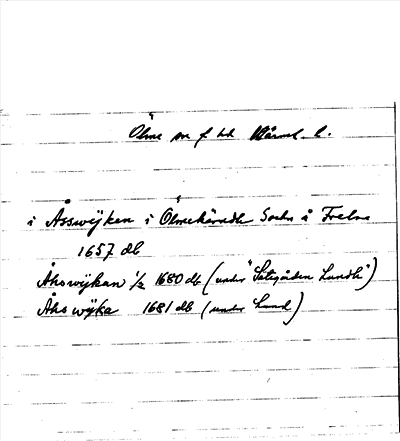 Ölme sn f hd Värml. l.
i Åsswijken i Ölmehäradh Sochn å Frelse
1657 db
Åhswijkan 1/2 1680 db (under "Sätigården Lundh")
Åhs wijka 1681 db (under Lund)